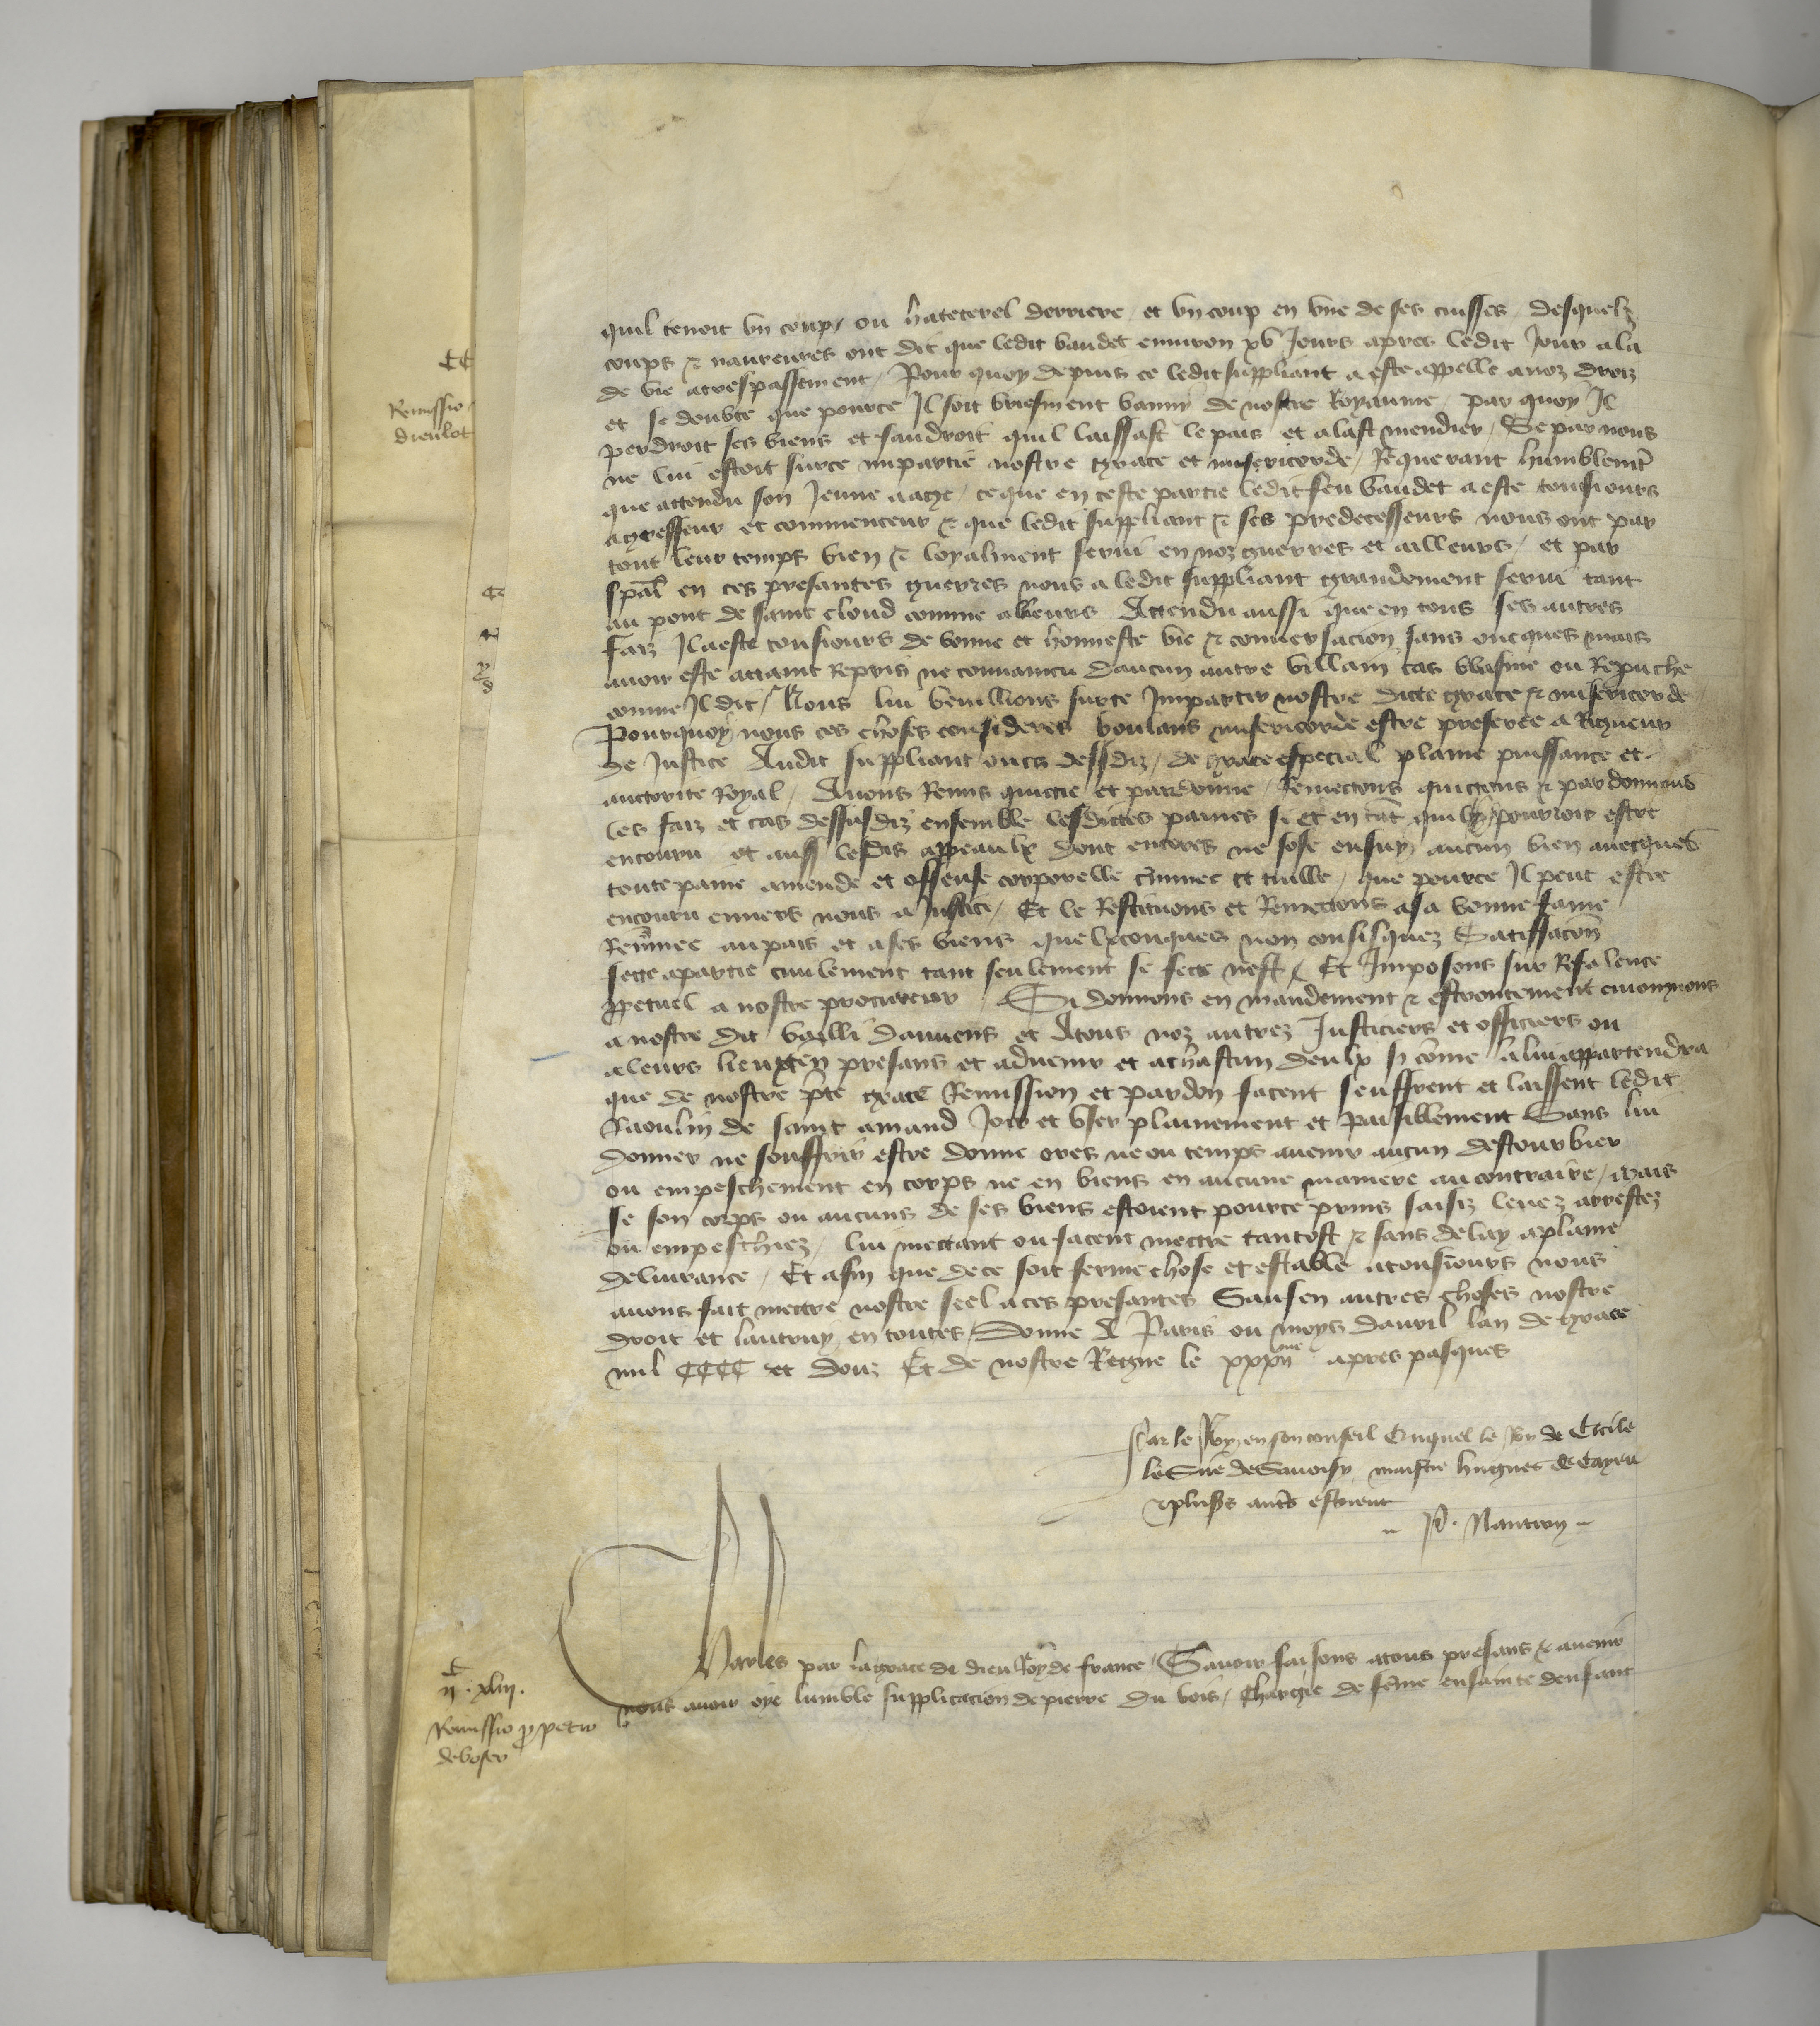 quil tenoit un coup / ou hateterel derriere / et un coup en une de ses cuisses / desquelz
coups & navreures ont dit que ledit baudet environ xv jours apres ledit jour ala
de vie a trespassement / Pour quoy depuis ce ledit suppliant a este appelle a noz droiz
et se doubte que pource Il soit briefment banny de nostre Royaume / par quoy Il
perdroit ses biens et faudroit quil laissast le pais et alast mendier / Se par nous
ne lui estoit surce impartie nostre grace et misericorde / Requerant humblemt
que attendu son Jeune aage / ce que en ceste partie ledit feu baudet a este tousiours
agresseur et commenceur & que ledit suppliant & ses predecesseurs nous ont par
tout leur temps bien & loyalment servi en noz guerres et ailleurs / et par
spal en ces presantes guerres nous a ledit suppliant grandement servi tant
au pont de saint cloud comme ailleurs Attendu aussi que en tous ses autres
faiz Il a este tousiours de bonne et honneste vie & conversacion sans oncques mais
avoir este actaint Repris ne convaincu daucun autre villain cas blasme ou Repruche
comme Il dit / Nous lui veuillions surce Impartir nostre dicte grace & misericorde
Pourquoy nous ces choses considerees voulans misericorde estre preferee a Rigueur
de Justice Audit suppliant ou cas dessdiz / de grace especial plaine puissance et
auctorite Royal / Avons Remis quictie et pardonne / Remectons quictons & pardonnons
les faiz et cas dessusdiz ensemble lesdictes paines si et en tant quil pourroit estre
encouru et auss lesdis appeaulx dont encores ne sose ensuy aucun bien avecques
toute paine amende et offense corporelle crimnee et civille / que pource Il peut estre
encouru envers nous a Justice / Et le Restituons et Remectons a sa bonne fame
Renommee au pais et a ses biens quelxconques non confisquez Satisfacon
fecte a partie civilement tant seulement se fecte nest / Et Imposons sur ce silence
ppetuel a nostre procureur / Si donnons en mandement & estroictement enioignons
a nostre dit bailli damiens et Atous noz autrez Justiciers et officiers ou
a leurs lieuxten presans et advenir et a chascun deulx si come a lui appartendra
que de nostre pnte grace Remission et pardon facent seuffrent et laissent ledit
Raoulin de saint amand Joir et user plainement et paisiblement Sans lui
donner ne souffrir estre donne ores ne ou temps avenir aucun destourbier
ou empeschement en corps ne en biens en aucune maniere au contraire / mais
se son corps ou aucuns de ses biens estoient pource prins saisiz levez arrestez
ou empeschiez / lui mectant ou facent mectre tantost & sans delay a plaine
delivrance / Et afin que de ce soit ferme chose et estable a tousiours nous
avons fait mectre nostre seel a ces presantes Sauf en autres choses nostre
droit et lautruy en toutes / Donne A Paris ou moys davril lan de grace
mil CCCC et douz Et de nostre Regne le xxxiime apres pasques
Par le Roy en son conseil Ouquel le Roy de Cicile
le Sire de Savoisy maistre hugues
& pluss autrs estoient
N. Nantron
Charles par la grace de dieu Roy de france / Savoir faisons atous presans & avenir
nous avoir oye lumble supplicacion de pierre du bois / Chargie de feme ensainte denfant
CC
Remissio
dieulot
C
ii . xliii .
Remissio p petro
de bosco